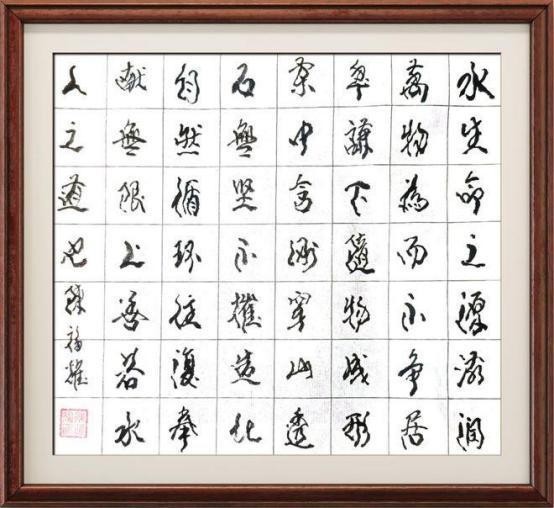 水生命之源滋润
萬物為而不争居
卑謙下随物成形
柔中含剛穿山透
石無坚不摧造化
自然循环往復奉
献無限上善若水
人之道也